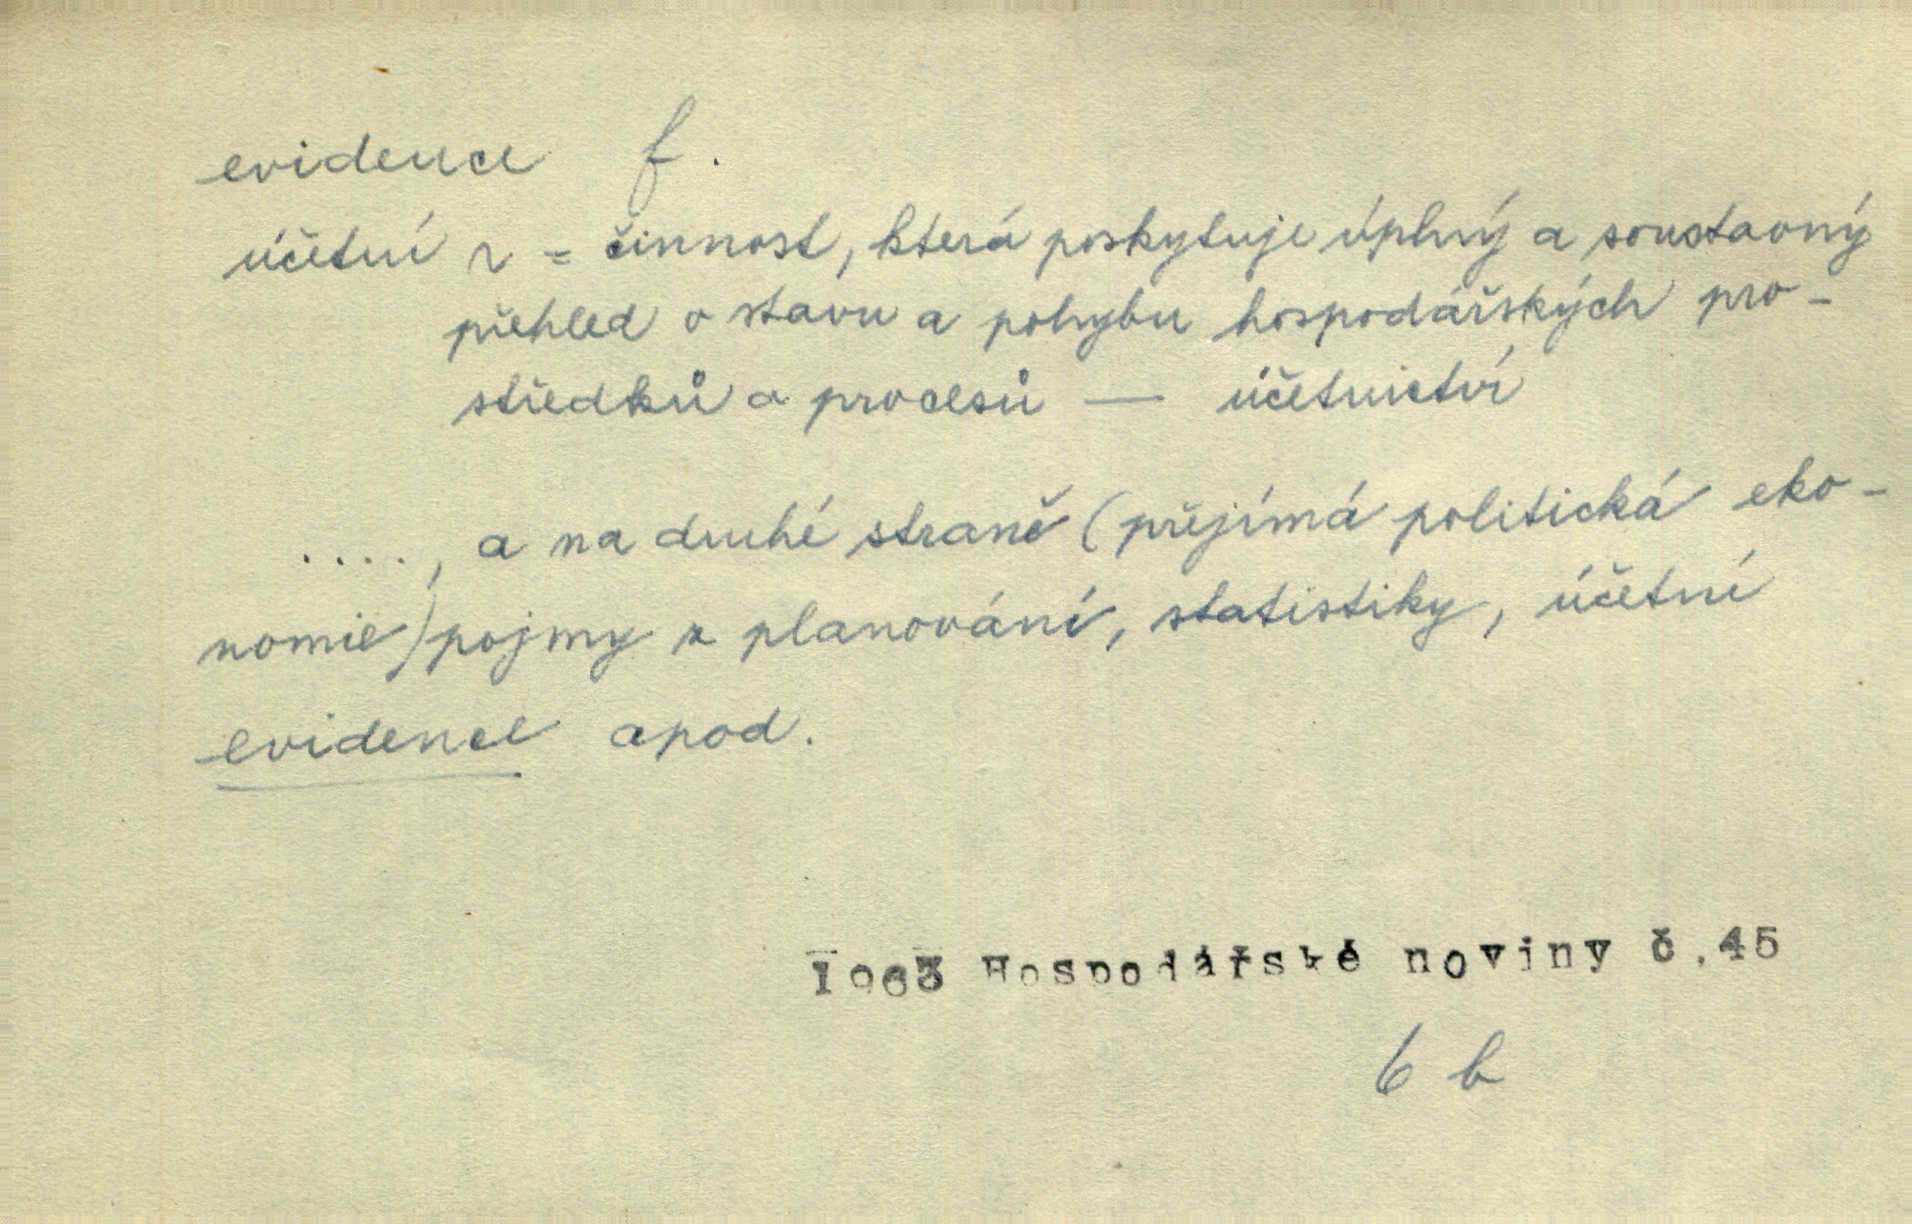 evidence f.
účetní ~ = činnost, která poskytuje úplný a soustavný
přehled o stavu a pohybu hospodářských pro-
středků a procesů — účetnictví
...., a na druhé straně (přejímá politická eko-
nomie) pojmy z plánování, statistiky, účetní
evidence apod.
1963 Hospodářské noviny č.45
6 b